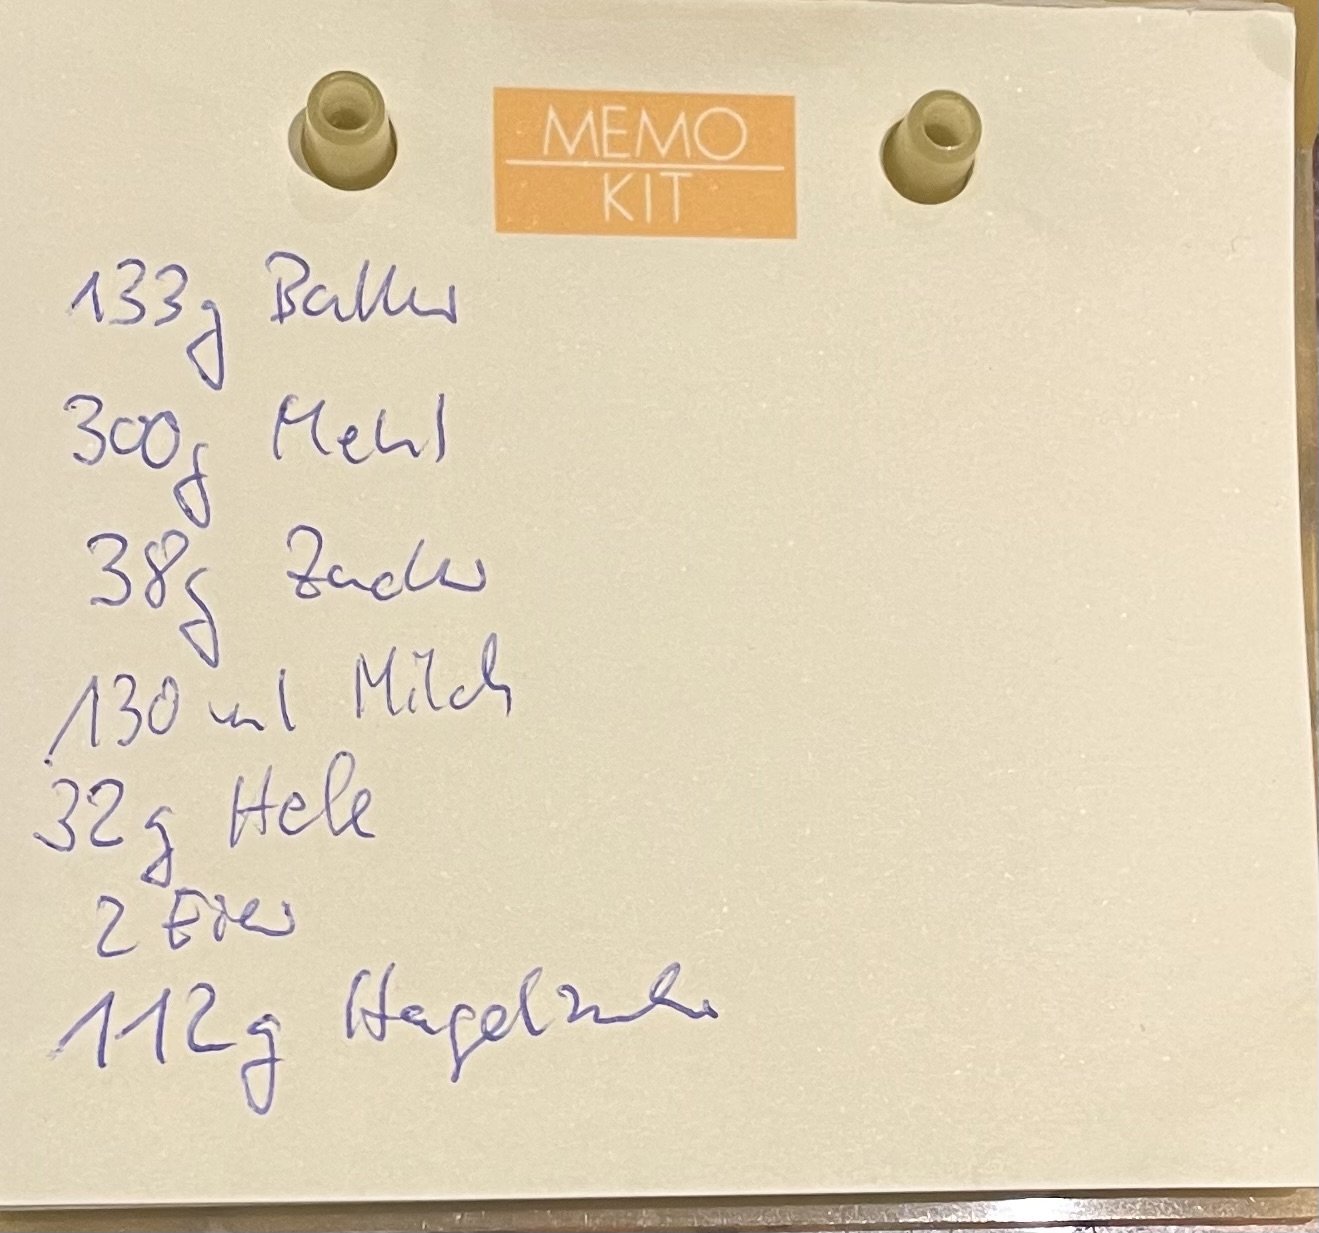 MEMO
KIT
133g Butter
300g Mehl
38g Zucker
130 ml Milch
32g Hefe
2 Eier
112g Hagelzucker